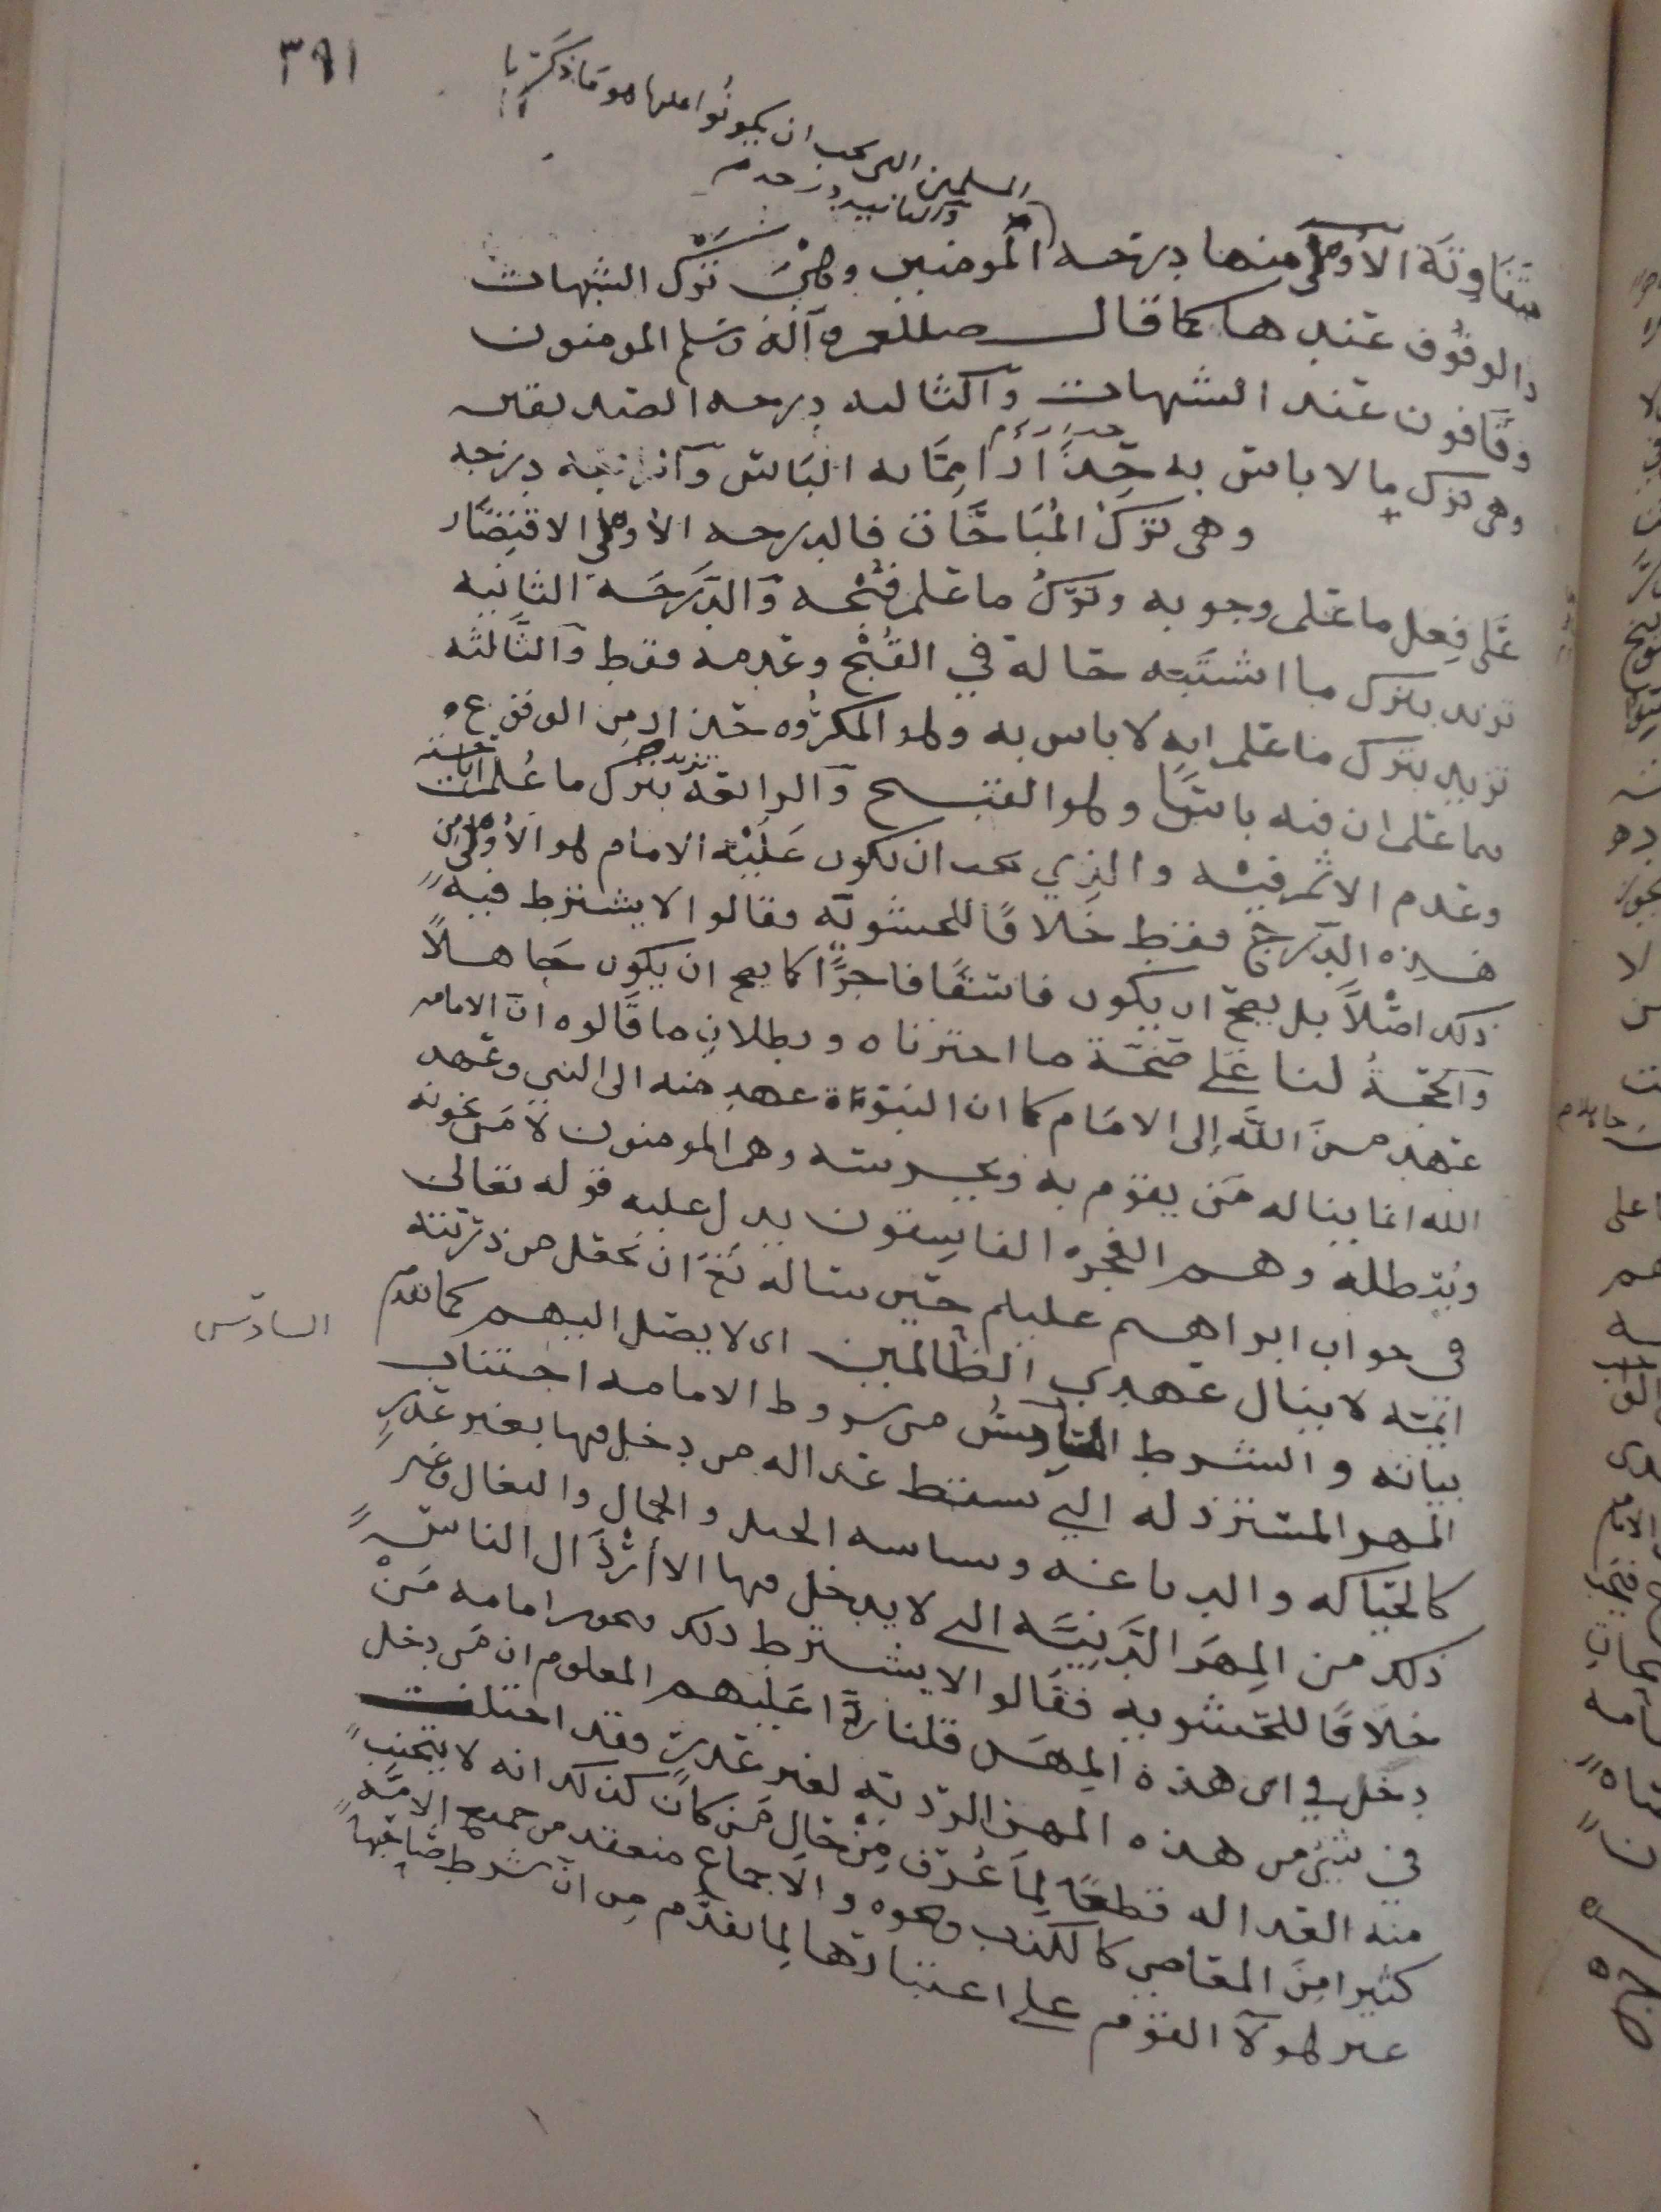 ٣٩١
المسلمين التي يجب ان يكونوا عليها هو ما ذكرنا
والثانيه درجه
متفاوتة الأولى منها درجه المومنين وهي ترك الشبهات
والوقوف عند ها كما قال صللم وآله وسلم المومنون
وقافون عند الشبهات والثالثه درجه الصديقين
وهى ترك ما لا باس به حذرًا مما به البأس والرابعه درجه
وهى ترك المُبَاحَات فالدرجه الأولى الاقتصار
على فِعل ما علم وجوبه وترك ما علم قبحه والدرجَة الثانيه
تزيد بترك ما اشتبه حاله في القُبْح وعدمه فقط والثالثه
تزيد بترك ما علم انه لا باس به وهو المكروه حذرا من الوقوع
فيما علم ان فيه باسًا وهو القبيح والرابعه تزيد بترك ما عُلم اباحته
وعدم الاثم فيه والذي يجب ان يكون عَلَيْه الامام هو الأولى من
هذه الدرج فقط خلافًا للحشويه فقالوا لا يشترط فيه
ذلك اصْلاً بل يصح ان يكون فاسقًا فاجرًا كما يصح ان يكون جاهلاً
والحجّةُ لنا على صحّة ما اخترناه وبطلان ما قالوه ان الامامه
عهد من اللّه إلى الامام كما ان النبوّة عهد منه الى النبي وعهد
الله انما يناله من يقوم به ويحرسه وهم المومنون لا من يخونه
ويُبطله وهم الفجره الفاسقون يدل عليه قوله تعالى
فى جواب ابراهيم عليلم حين ساله تع ان يجعل من ذريته
ائمّه لا ينال عهدي الظالمين اى لا يصل اليهم كما تقدم
السادس
بيانه والشرط السادسُ من شروط الامامه اجتناب
المهن المسترذله التي تسقط عداله من دخل فيها بغير عذرٍ
كالحياكه والدباغه وسياسه الحمير والجمال والبغال وغير
ذلك من المِهَن الدنيَّه التي لا يدخل فيها الا أرْذَال الناس
خلافًا للحشويه فقالوا لا يشترط ذلك وتجوز امامه مَنْ
دخل في اى هذه المِهَن قلنا ردًّا عليهم المعلوم ان من دخل
في شئ من هذه المهن الرديّه لغير عذرٍ فقد اختلت
منه العداله قطعًا لِمَا عُرف مِنْ حال مَن كان كذلك انه لا يتجنب
كثيرا مِنَ المعاصي كالكذب ونحوه والاجماع منعقد من جميع الامَّه
غير هولآ القوم على اعتبارها لِما تقدّم من انّ شرط صاحبها